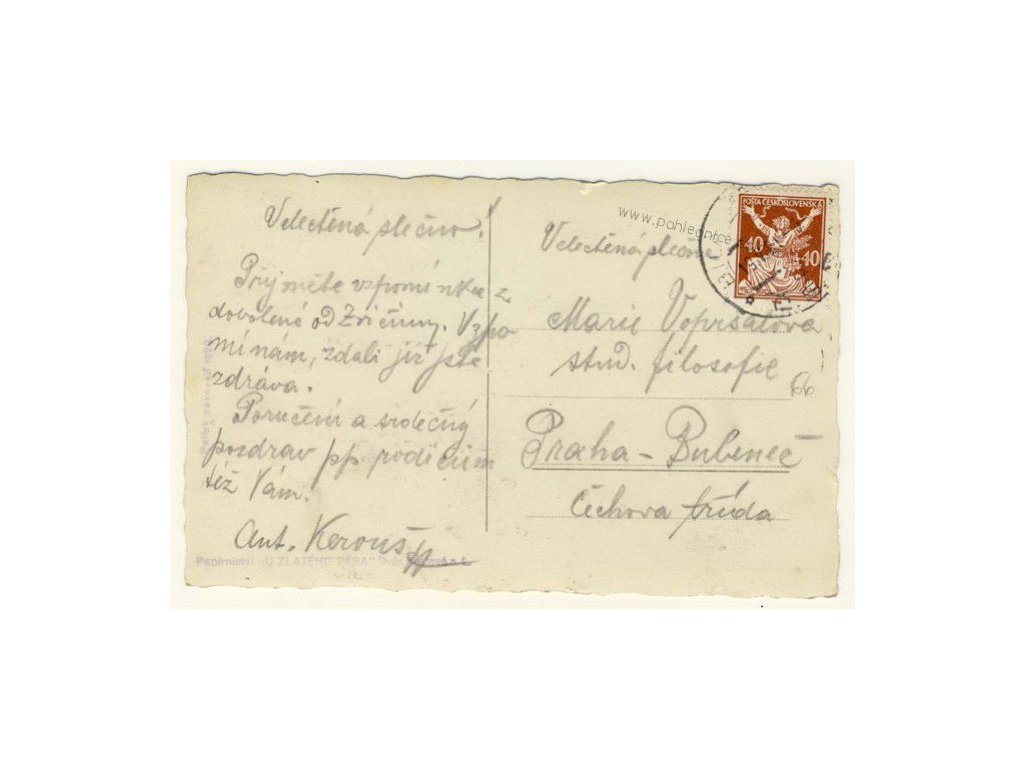 Velectěná slečno.
Přijměte vzpomínku z
dovolené od Zvičiny. Vzpo
mínám, zdali již jste
zdráva.
Poručení a srdečný
pozdrav pp. rodičům
též Vám.
Ant. Kerouš
Papírnictví „U ZLATÉHO PÉRA“
www.pohlednice
Velectěná slečna
Marie Vopršalova
stud. filosofie
66
Praha - Bubeneč
Čechova třída
POŠTA ČESKOSLOVENSKÁ
40 40